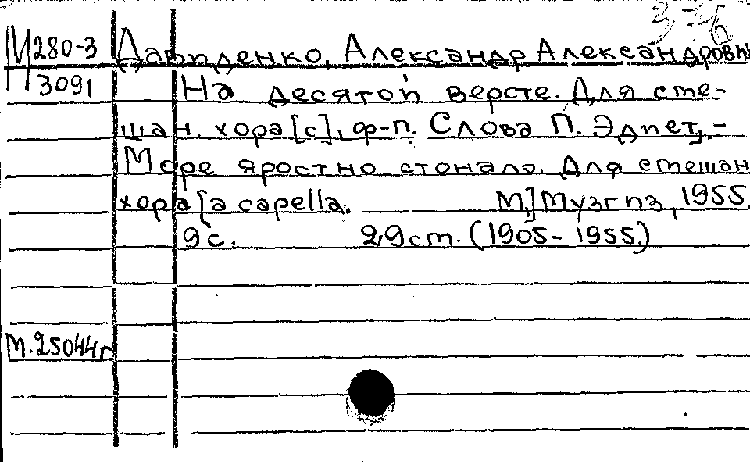 М 280-3 Давиденко, Александр Александрович
3091 На десятой версте. Для сме-
шан. хора [с], ф-п. Слова П. Эдиет, -
Море яростно стонало. Для смешан
хора [a capella. М.,] Музгиз, 1955.
9 с. 29 см. (1905-1955.)
М.25044г